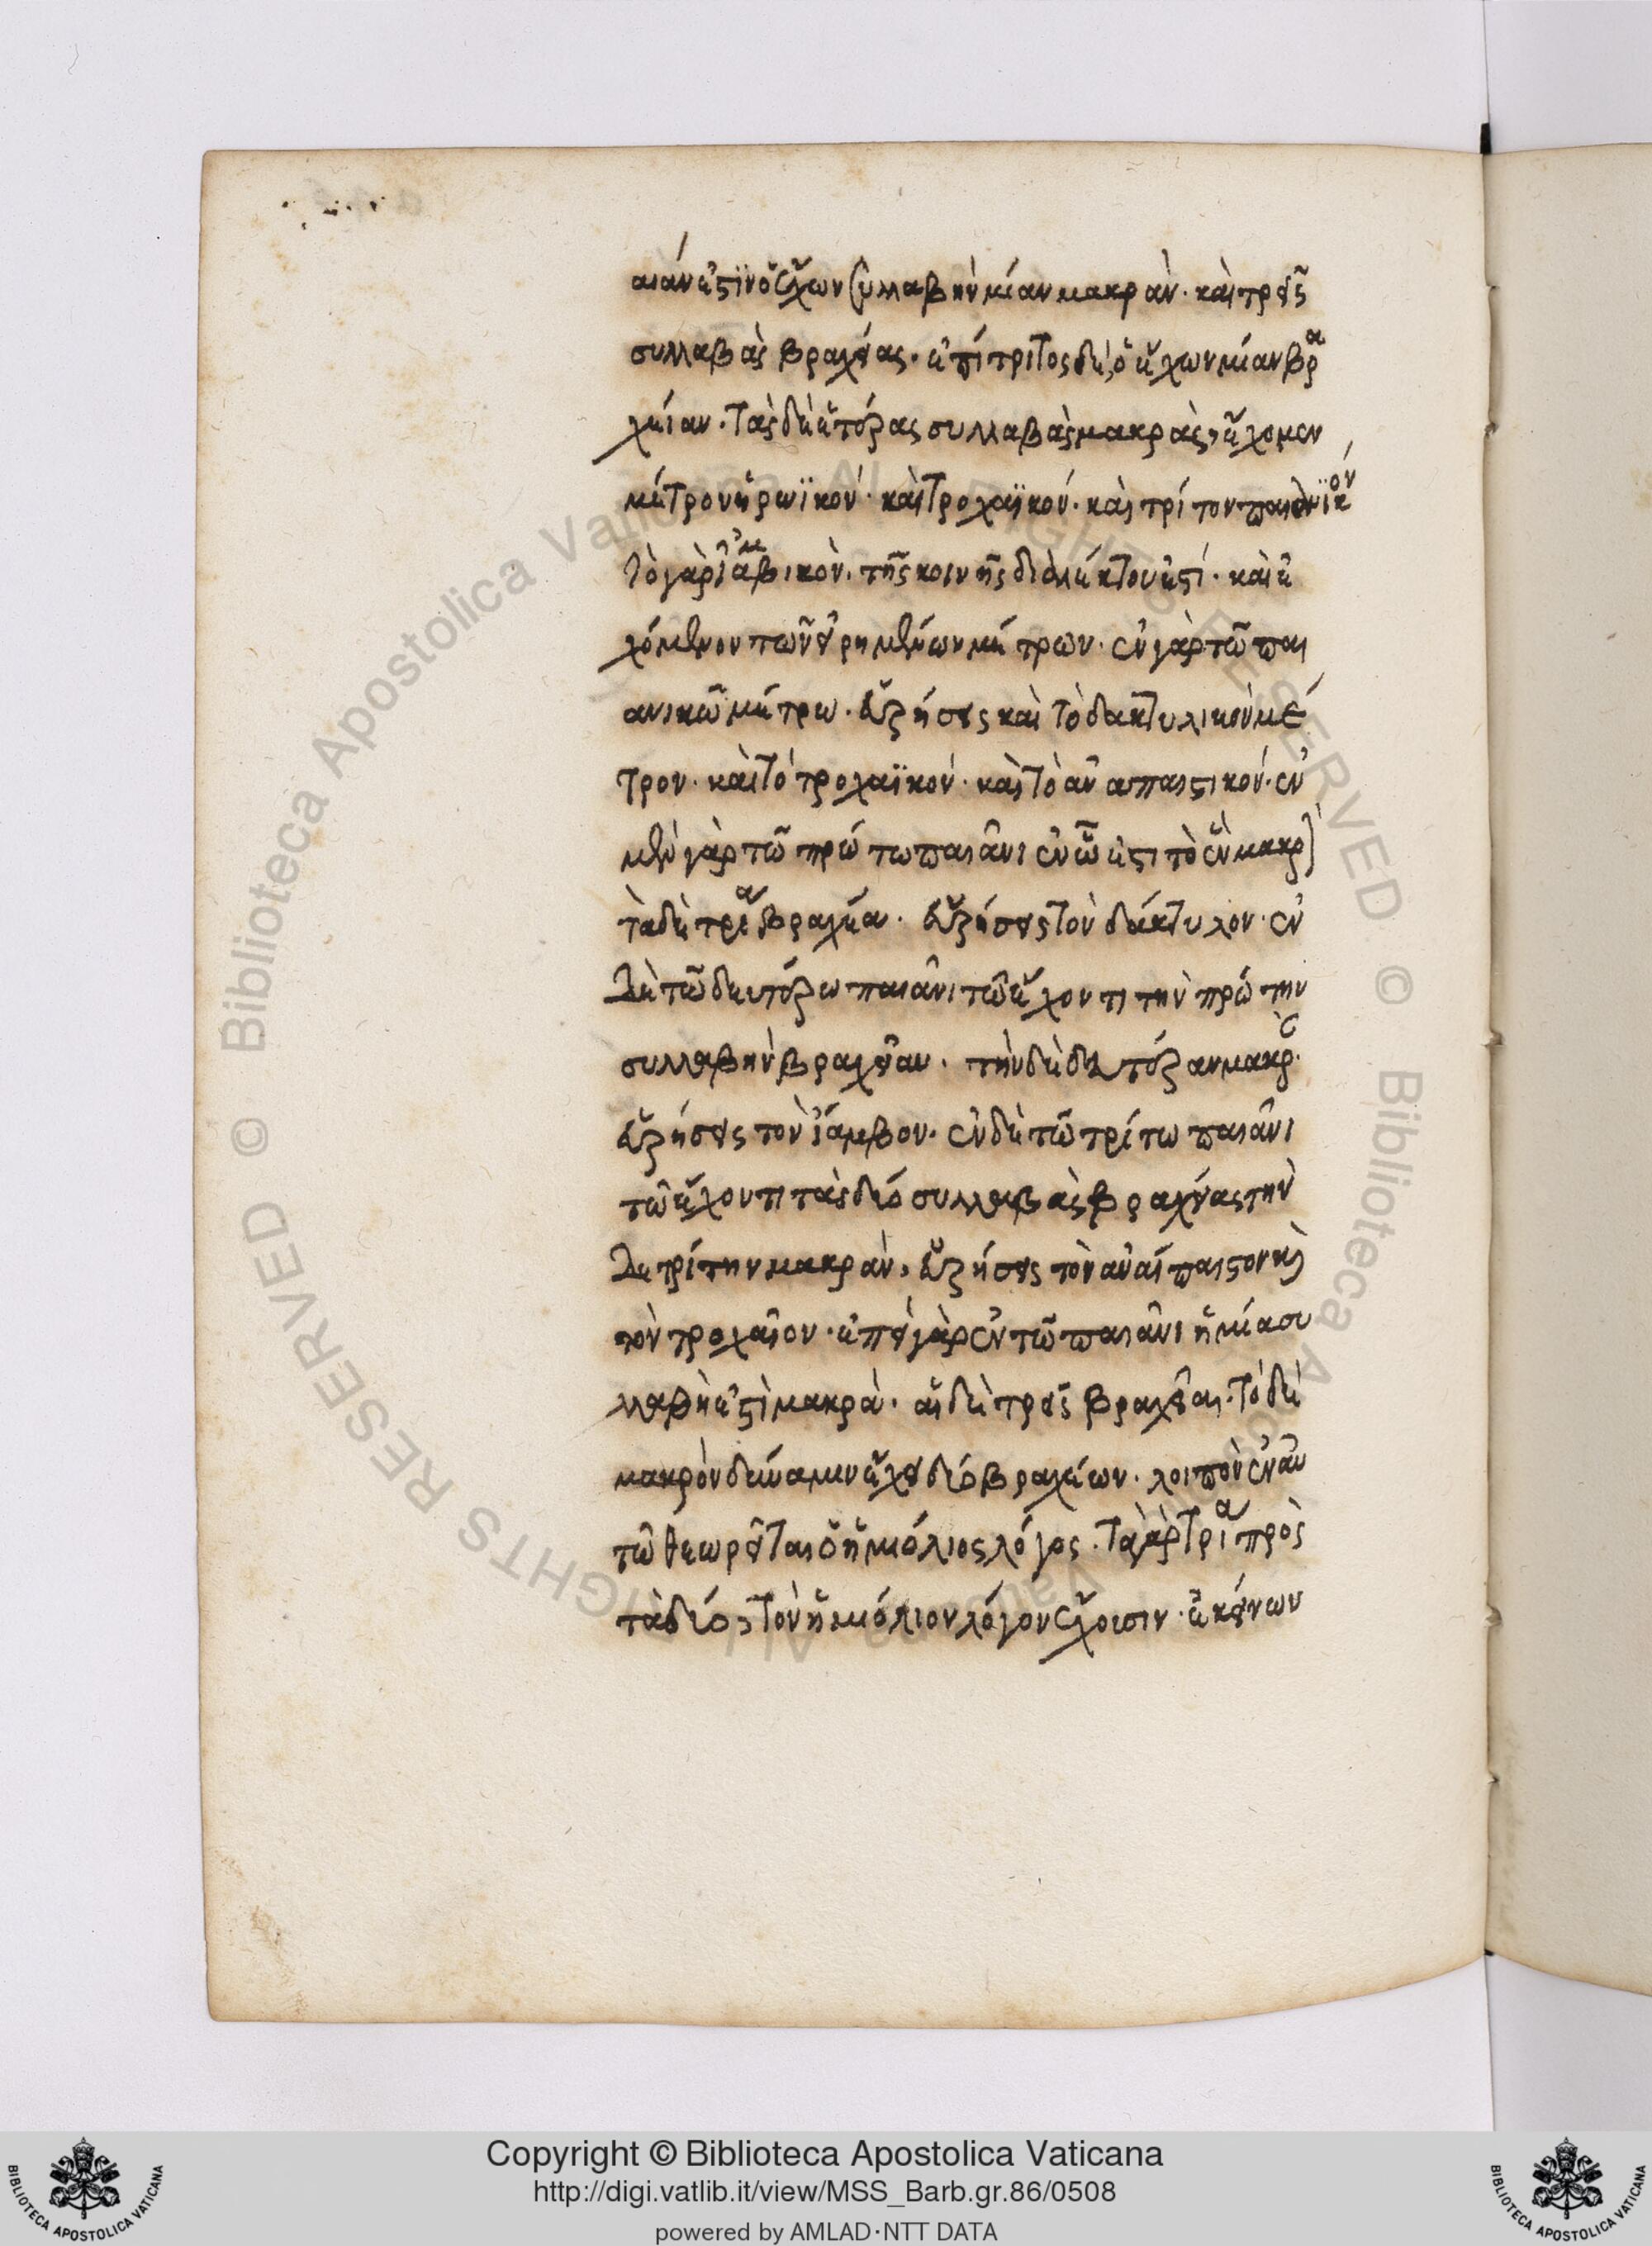 αιάν ἐστιν ὁ ἔχων συλλαβὴν μίαν μακρὰν. καὶ τρεῖς
συλλαβὰς βραχείας. ἐπίτριτος δὲ, ὁ ἔχων μίαν βρα
χεῖαν. τὰς δὲ ἑτέρας συλλαβὰς μακρὰς, ἔχομεν
μέτρον ἡρωϊκόν. καὶ τροχαϊκόν. καὶ τρίτον παιωνϊκόν
τὸ γὰρ ἰαμβικὸν. τῆς κοινῆς διαλέκτου ἐστί. καὶ ἐ
χόμενον τῶν εἰρημένων μέτρων. ἐν γὰρ τῶ παι
ανικῶ μέτρω. εὑρήσεις καὶ τὸ δακτυλικὸν μέ
τρον. καὶ τὸ τροχαϊκόν. καὶ τὸ ἀναπαιστικόν. ἐν
μὲν γὰρ τῶ πρώτω παιᾶνι ἐν ᾧ ἐστι τὸ ἓν μακρὸν
τὰ δὲ τρία βραχέα. εὑρήσεις τὸν δάκτυλον. ἐν
δὲ τῶ δευτέρω παιᾶνι τῶ ἔχοντι τὴν πρώτην
συλλαβὴν βραχεῖαν. τὴν δὲ δευτέραν μακρὰν.
εὑρήσεις τὸν ἴαμβον. ἐν δὲ τῶ τρίτω παιᾶνι
τῶ ἔχοντι τὰς δύο συλλαβὰς βραχείας τὴν
δὲ τρίτην μακρὰν, εὑρήσεις τὸν ἀνάπαιστον καὶ
τὸν τροχαῖον. ἐπεὶ γὰρ ἐν τῶ παιᾶνι ἡ μία συ
λλαβὴ ἐστὶ μακρὰ. αἱ δὲ τρεῖς βραχεῖαι. τὸ δὲ
μακρὸν δύναμιν ἔχει δύο βραχέων. λοιπὸν ἐν αὐ
τῶ θεωρεῖται ὁ ἡμιόλιος λόγος. τὰ γὰρ τρία πρὸς
τὰ δύο, τὸν ἡμιόλιον λόγον ἔχουσιν. ἐκείνων
Copyright © Biblioteca Apostolica Vaticana
http://digi.vatlib.it/view/MSS_Barb.gr.86/0508
powered by AMLAD·NTT DATA